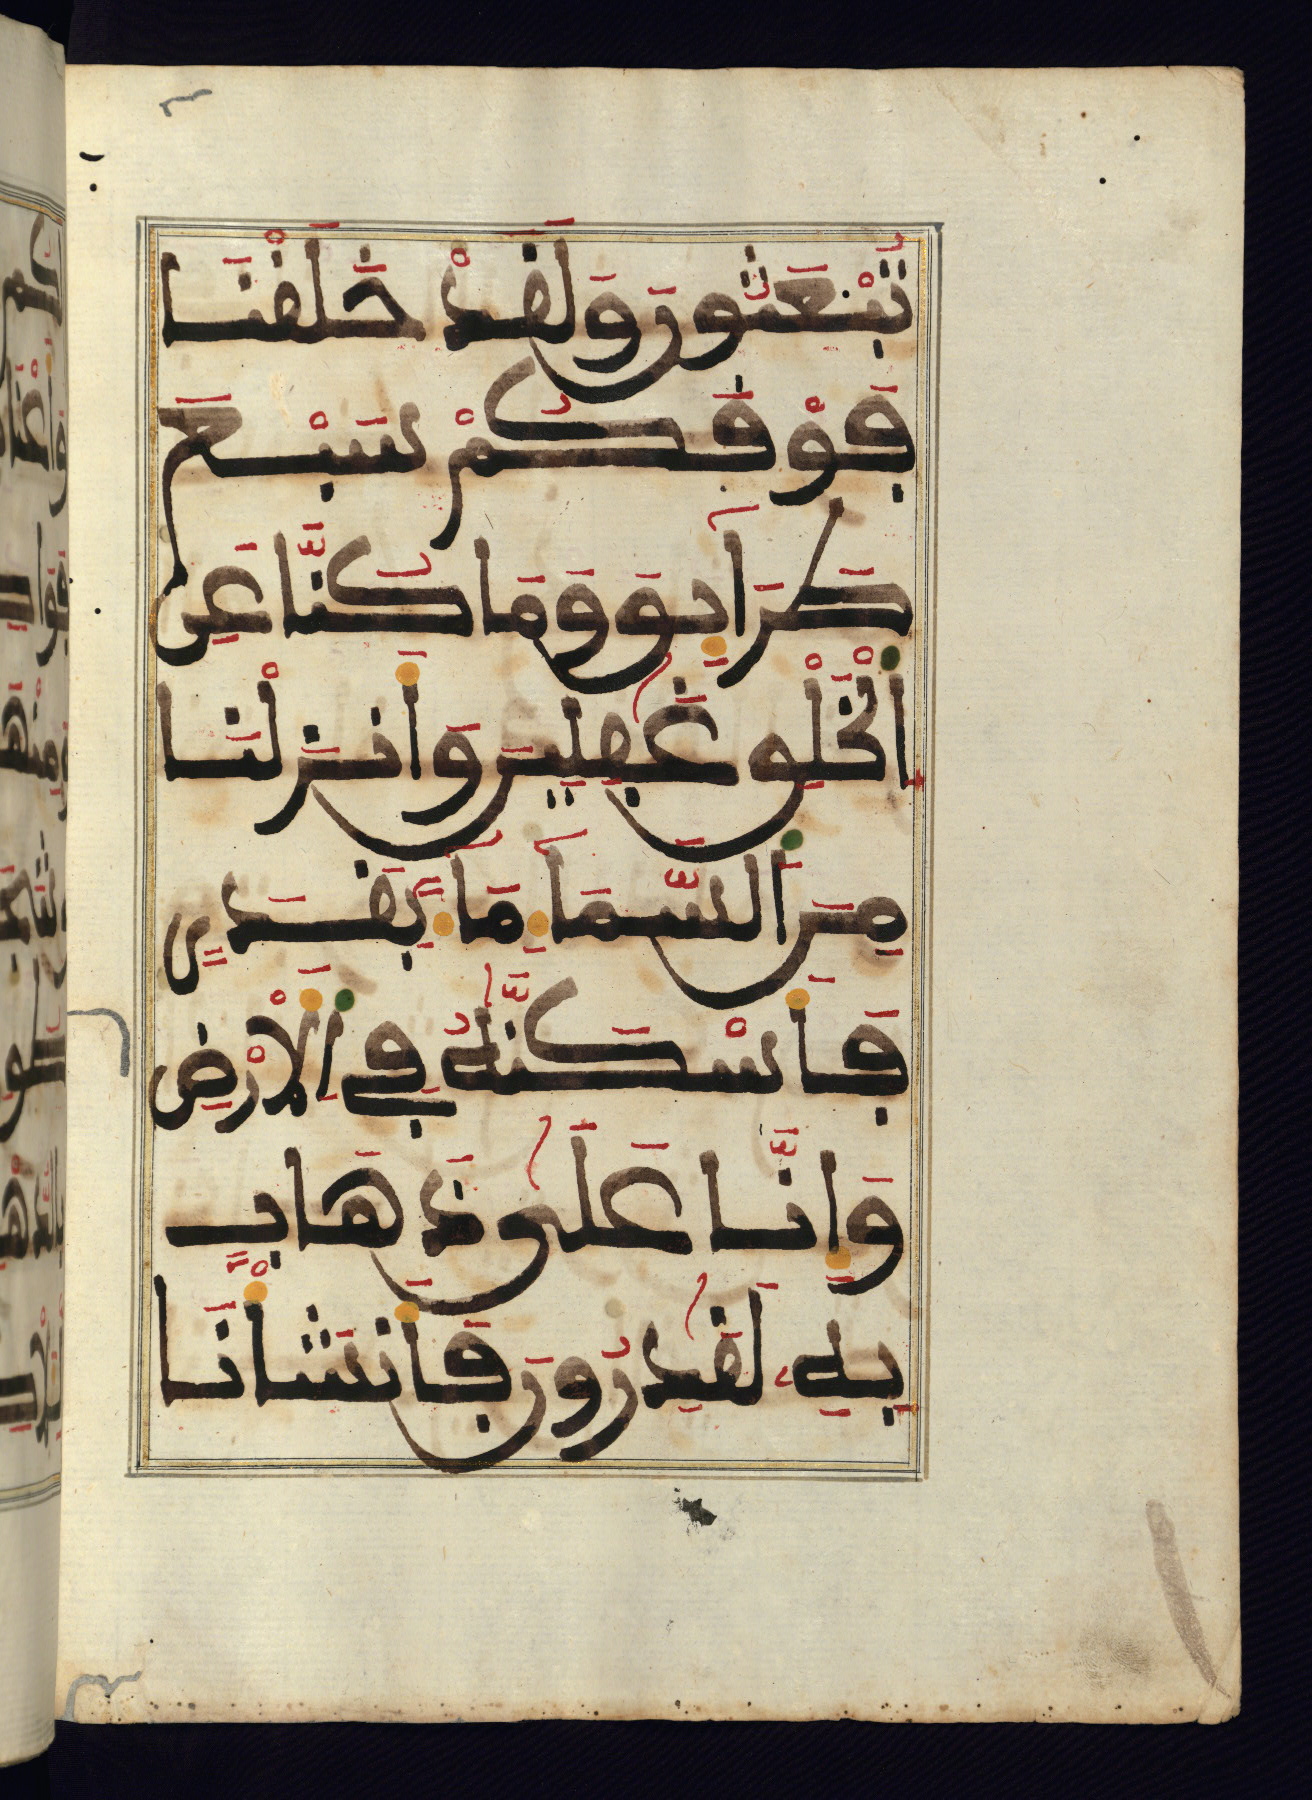 تُبْعَثُونَ وَلَقَدْ خَلَقْنَا
فَوْقَكُمْ سَبْعَ
طَرَآئِقَ وَمَا كُنَّا عَنِ
اَ۬لْخَلْقِ غَٰفِلِينَ وَأَنزَلْنَا
مِنَ اَ۬لسَّمَآءِ مَآءَۢ بِقَدَرٖ
فَأَسْكَنَّٰهُ فِے اِ۬لْأَرْضِ
وَإِنَّا عَلَىٰ ذَهَابِۢ
بِهِۦ لَقَٰدِرُونَ فَأَنشَأْنَا